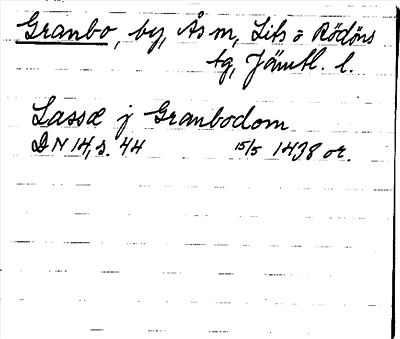 Granbo, by, Ås sn, Lits o Rödöns
tg, Jämtl. l.
Lassæ j Granbodom
DN 14, s. 44 15/5 1438 or.